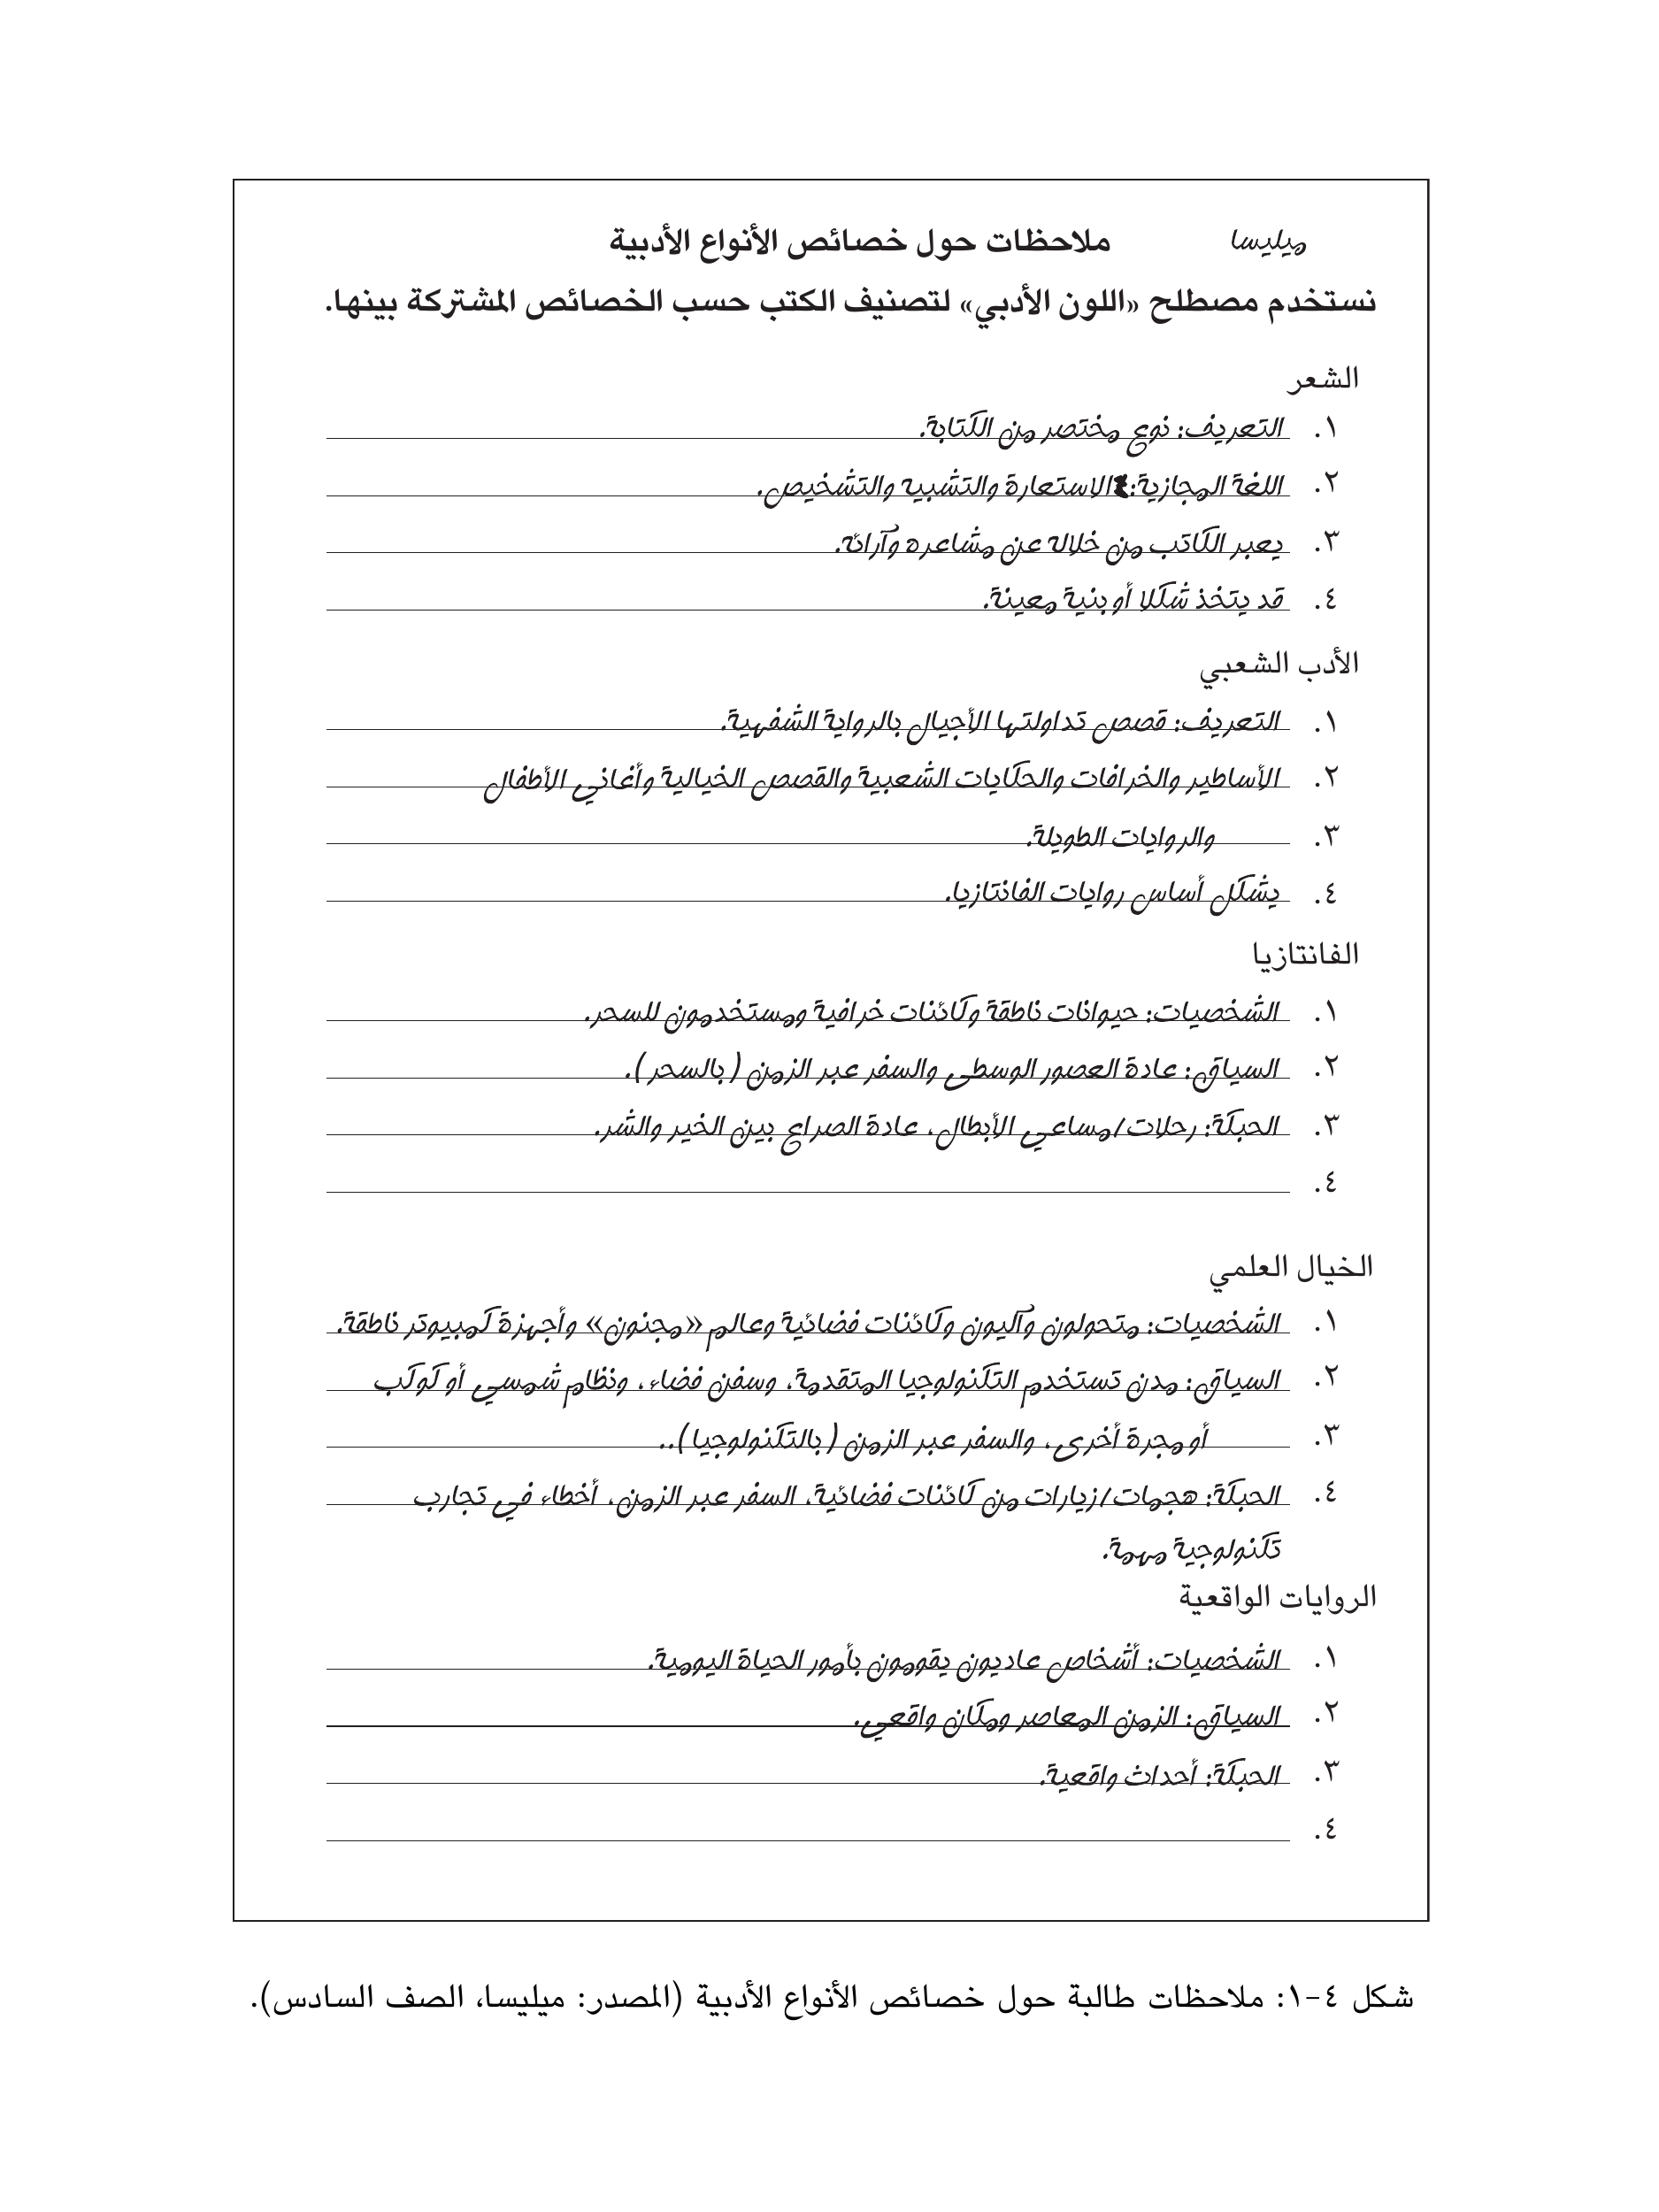 ميليسا ملاحظات حول خصائص الأنواع الأدبية
نستخدم مصطلح «اللون الأدبي» لتصنيف الكتب حسب الخصائص المشتركة بينها.
الشعر
١. التعريف: نوع مختصر من الكتابة.
٢. اللغة المجازية: الاستعارة والتشبيه والتشخيص.
٣. يعبر الكاتب من خلاله عن مشاعره وآرائه.
٤. قد يتخذ شكلا أو بنية معينة.
الأدب الشعبي
١. التعريف: قصص تداولتها الأجيال بالرواية الشفهية.
٢. الأساطير والخرافات والحكايات الشعبية والقصص الخيالية وأغاني الأطفال
٣. والروايات الطويلة.
٤. يشكل أساس روايات الفانتازيا.
الفانتازيا
١. الشخصيات: حيوانات ناطقة وكائنات خرافية ومستخدمون للسحر.
٢. السياق: عادة العصور الوسطى والسفر عبر الزمن (بالسحر).
٣. الحبكة: رحلات/مساعي الأبطال، عادة الصراع بين الخير والشر.
٤.
الخيال العلمي
١. الشخصيات: متحولون وآليون وكائنات فضائية وعالم «مجنون» وأجهزة كمبيوتر ناطقة.
٢. السياق: مدن تستخدم التكنولوجيا المتقدمة، وسفن فضاء، ونظام شمسي أو كوكب
٣. أو مجرة أخرى، والسفر عبر الزمن (بالتكنولوجيا)..
٤. الحبكة: هجمات/زيارات من كائنات فضائية، السفر عبر الزمن، أخطاء في تجارب
تكنولوجية مهمة.
الروايات الواقعية
١. الشخصيات: أشخاص عاديون يقومون بأمور الحياة اليومية.
٢. السياق: الزمن المعاصر ومكان واقعي.
٣. الحبكة: أحداث واقعية.
٤.
شكل ٤-١: ملاحظات طالبة حول خصائص الأنواع الأدبية (المصدر: ميليسا، الصف السادس).